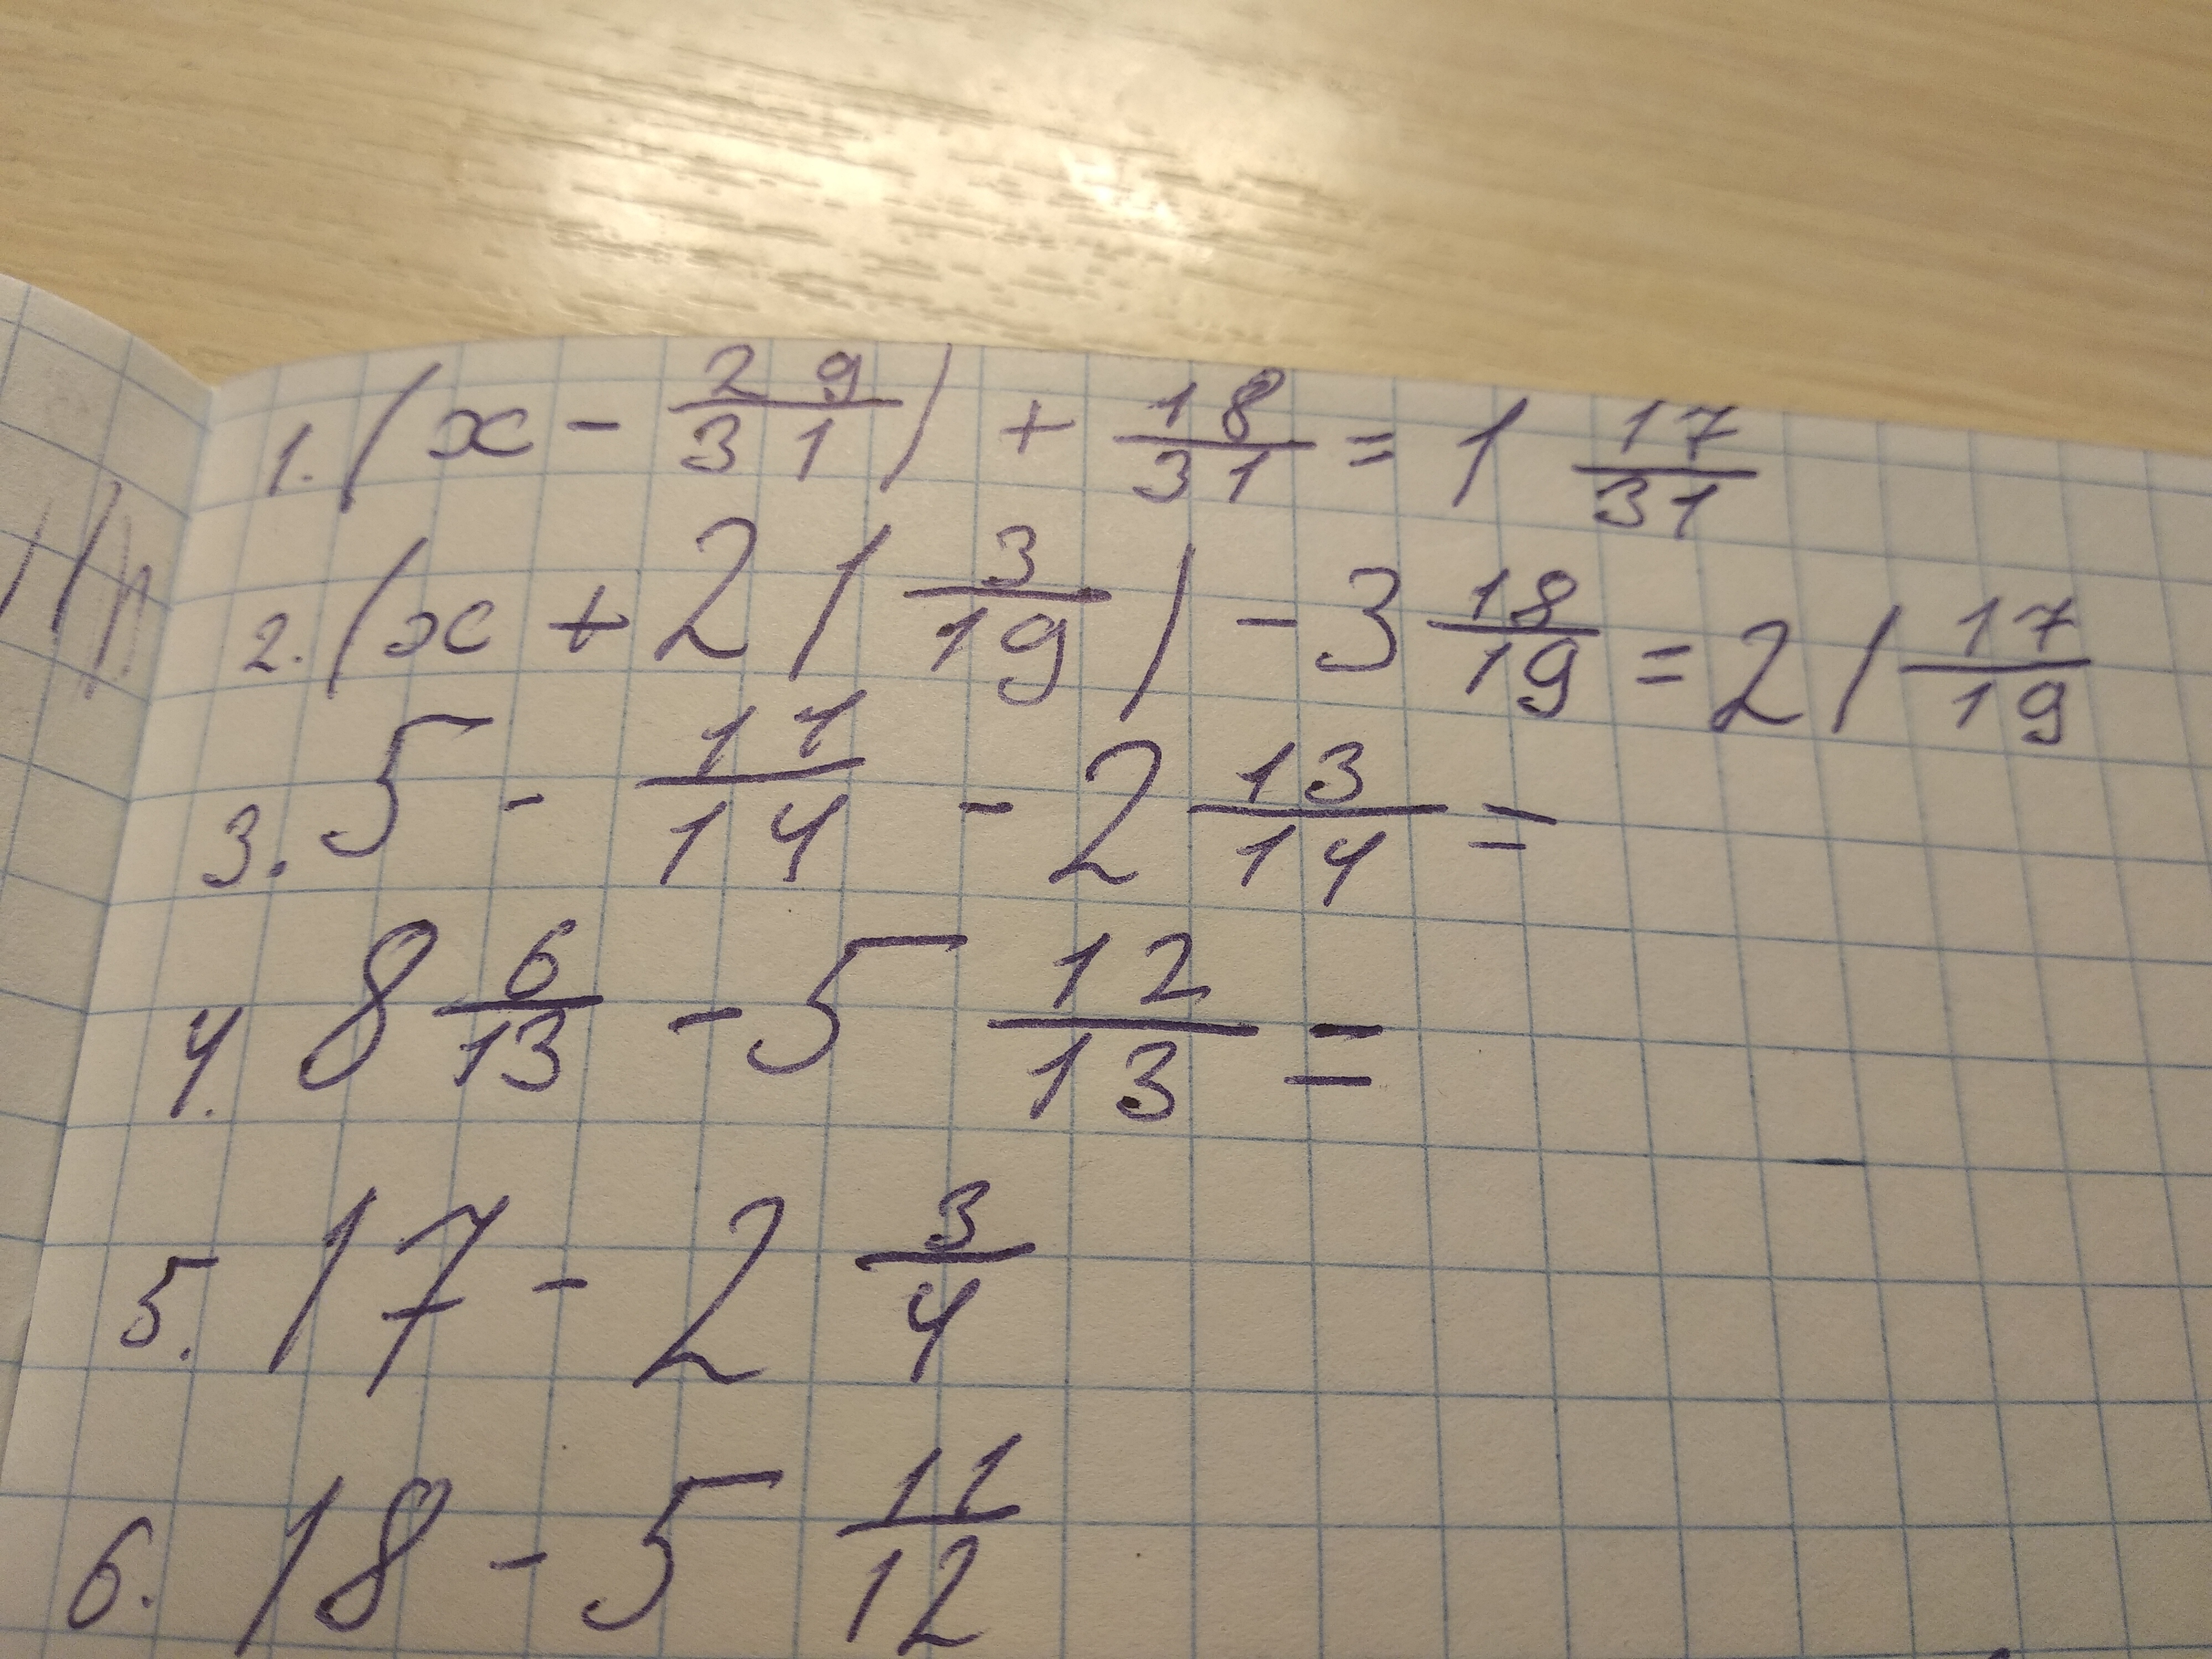 1. (x - 29/31) + 18/31 = 1 17/31
2. (x + 21 3/19) - 3 18/19 = 21 17/19
3. 5 - 11/14 - 2 13/14 =
4. 8 6/13 - 5 12/13 =
5. 17 - 2 3/4
6. 18 - 5 11/12